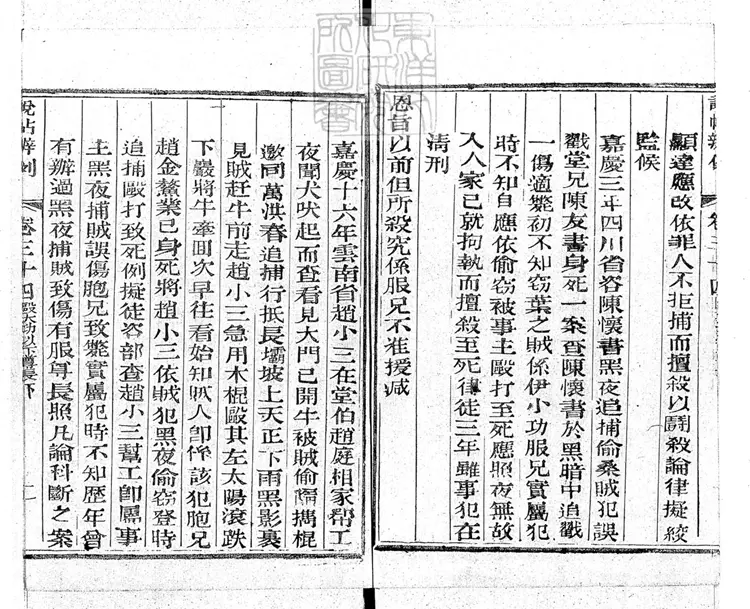 顯達應改依罪人不拒捕而擅殺以鬪殺論律擬絞
監候
嘉慶三年四川省咨陳懷書黑夜追捕偷桑賊犯誤
戳堂兄陳友書身死一案查陳懷書於黑暗中追戳
一傷適斃初不知窃葉之賊係伊小功服兄實屬犯
時不知自應依偷窃被事主毆打至死應照夜無故
入人家已就拘執而擅殺至死律徒三年雖事犯在
清刑
恩旨以前但所殺究係服兄不准援减
嘉慶十六年雲南省趙小三在堂伯趙庭相家帮工
夜聞犬吠起而查看見大門已開牛被賊偷竊攜棍
邀同萬洪春追捕行抵長壩坡上天正下雨黑影裏
見賊赶牛前走趙小三急用木棍毆其左太陽滾跌
下巖將牛牽回次早往看始知賊人卽係該犯胞兄
趙金鰲業已身死將趙小三依賊犯黑夜偷窃登時
追捕毆打致死例擬徒咨部查趙小三幫工卽屬事
主黑夜捕賊誤傷胞兄致斃實屬犯時不知歷年曾
有辦過黑夜捕賊致傷有服尊長照凡論科斷之案
說帖辨例
卷三十四